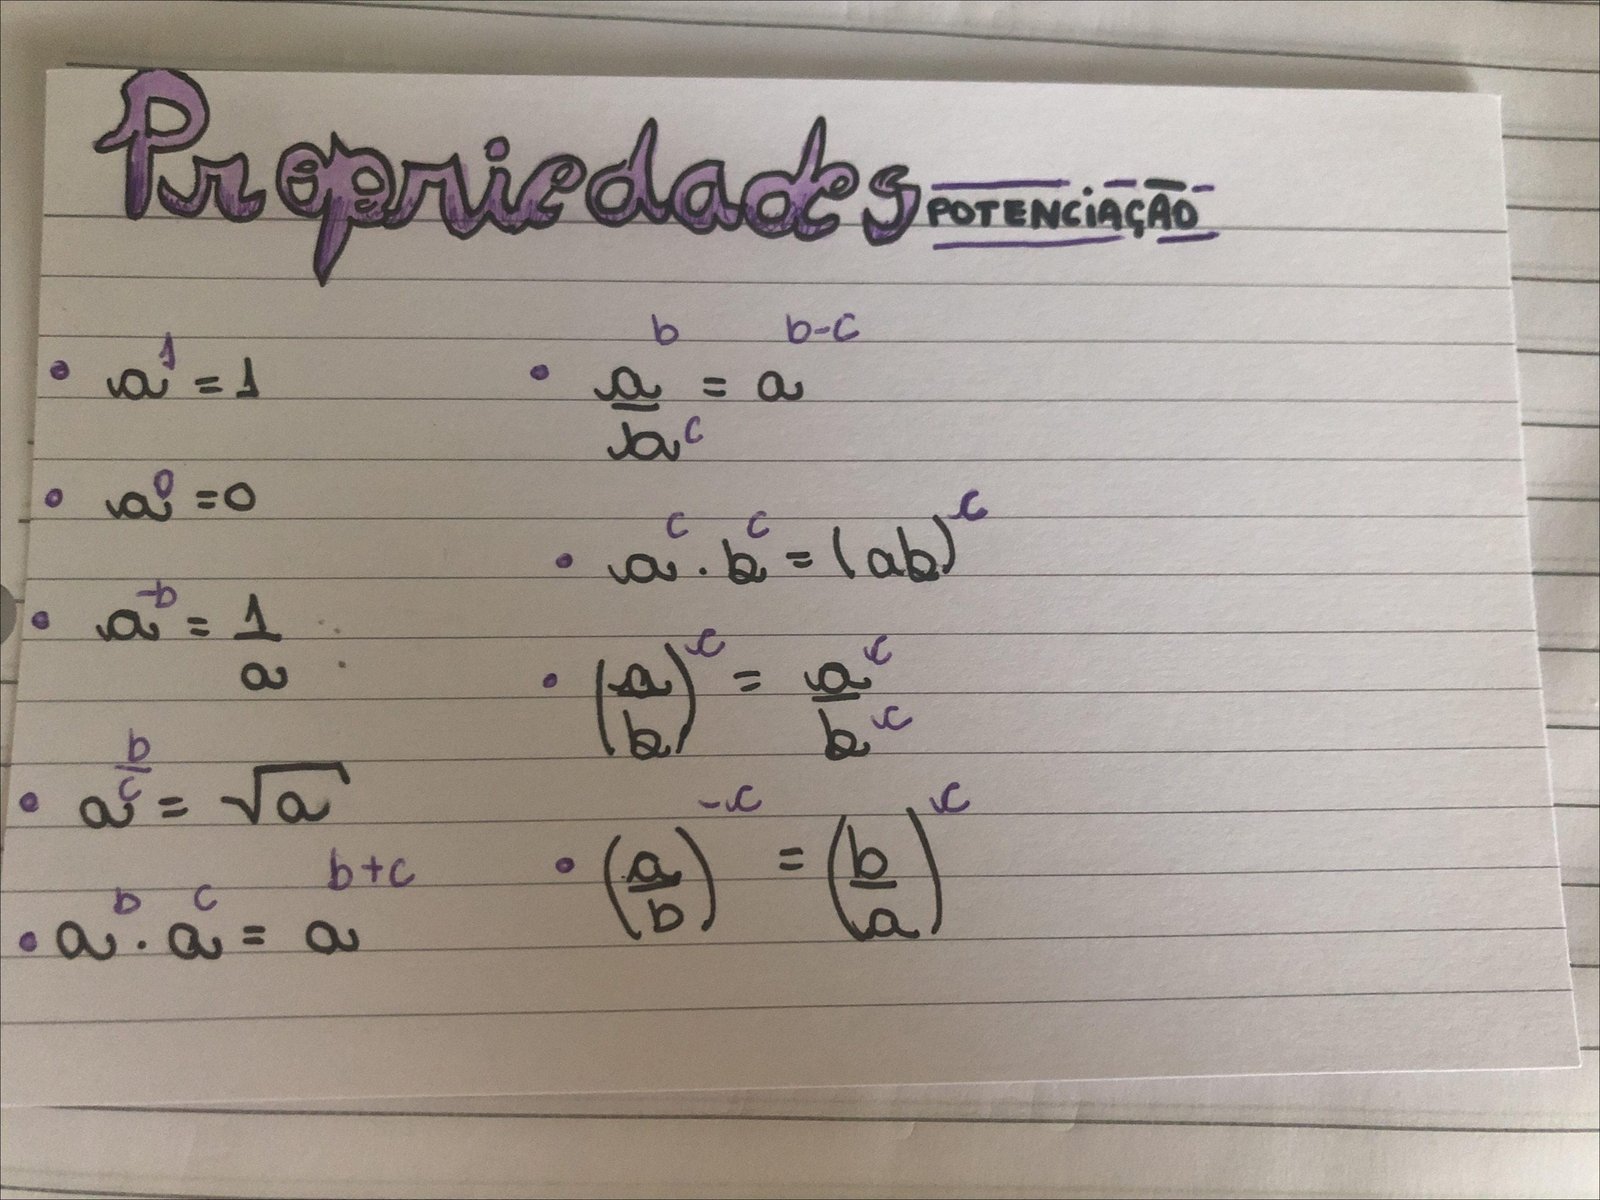 Propriedades POTENCIAÇÃO
• a¹ = 1
• a⁰ = 0
• a^-b = 1/a
• a^(b/c) = √a
• a^b . a^c = a^(b+c)
• a^b/a^c = a^(b-c)
• a^c . b^c = (ab)^c
• (a/b)^c = a^c/b^c
• (a/b)^-c = (b/a)^c